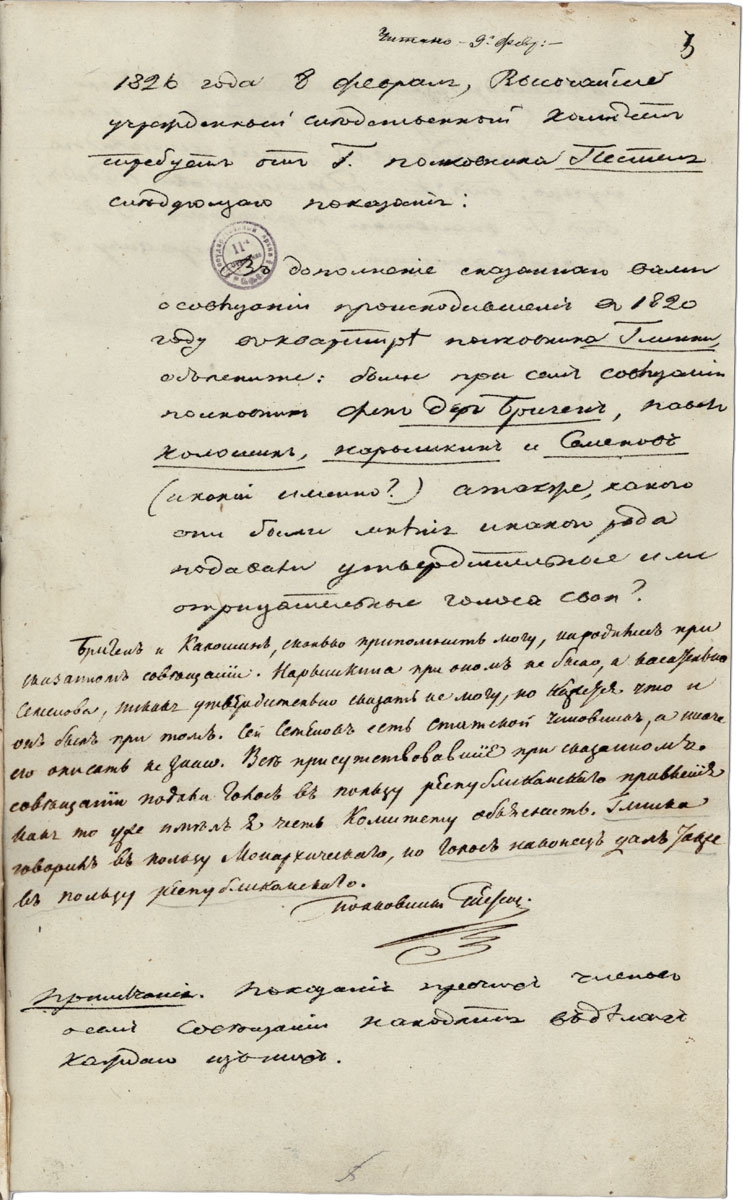 Читано 9го февр:
3
1826 года 8 февраля, Высочайше
учрежденный следственный Комитет
требует от Г. полковника Пестеля
следующаго показания:
В дополнение сказаннаго вами
о совещании происходившем в 1820
году в квартире полковника Глинки,
объясните: были при сем совещании
полковник фон Дер Бриген, Павел
Колошин, Нарышкин и Семенов
(и какой именно?) а также, какого
они были мнения и какого рода
подавали утвердительные или
отрицательные голоса свои?
Бриген и Калошин, сколько припомнить могу, находились при
сказанном совещании. Нарышкина при оном не было, а касательно
Семенова, то как утвердительно сказать не могу, но кажется что и
он был при том. Сей Семенов есть статской чиновник, а иначе
его описать не знаю. Все присутствовавшие при сказанном
совещании подали голос в пользу республиканского правления
как то уже имел я честь Комитету объяснить. Глинка
говорил в пользу Монархического, но голос наконец дал также
в пользу республиканского.
Полковник Пестель.
Примечание. Показания прочих членов
о сем совещании находятся в делах
каждаго из них.